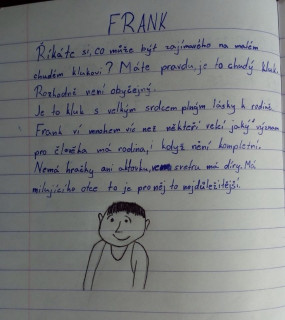 FRANK
Říkáte si, co může být zajímavého na malém
chudém klukovi? Máte pravdu, je to chudý kluk.
Rozhodně není obyčejný.
Je to kluk s velkým srdcem plným lásky k rodině.
Frank ví mnohem víc než někteří velcí jaký význam
pro člověka má rodina, i když není kompletní.
Nemá hračky ani aktovku, svetru má díry. Má
milujícího otce to je pro něj to nejdůležitější.